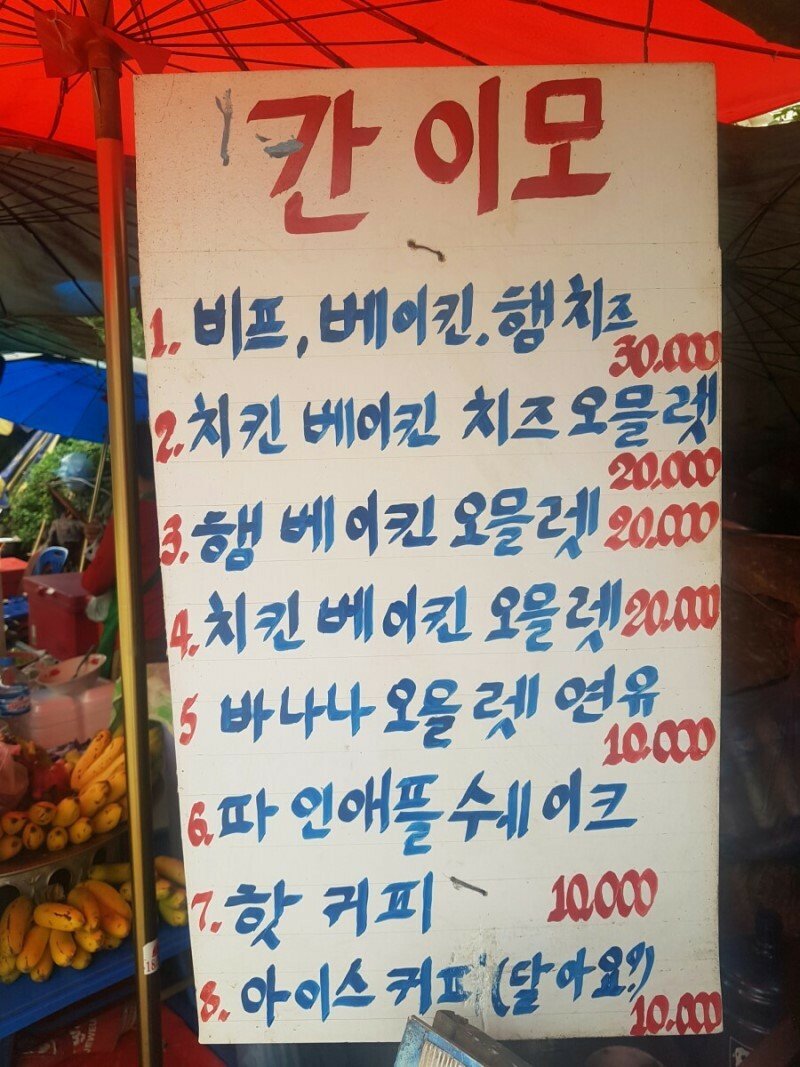 간 이모
1. 비프, 베이킨. 햄 치즈
30.000
2. 치킨 베이킨 치즈 오믈렛
20.000
3. 햄 베이킨 오믈렛 20.000
4. 치킨 베이킨 오믈렛 20.000
5 바나나 오믈렛 연유
10.000
6. 파인애플 수웨이크
7. 핫 커피 10.000
8. 아이스 커피 (달아요?)
10.000